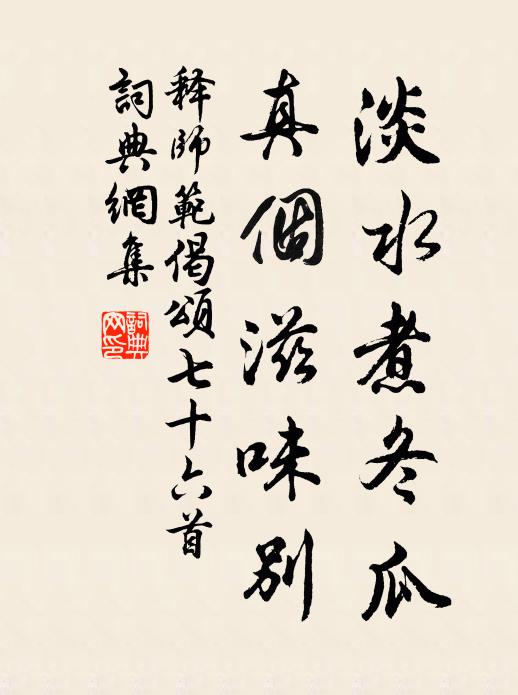 淡水煮冬瓜
真個滋味別
释師範偈頌七十六首
詞典網集
詞典網印